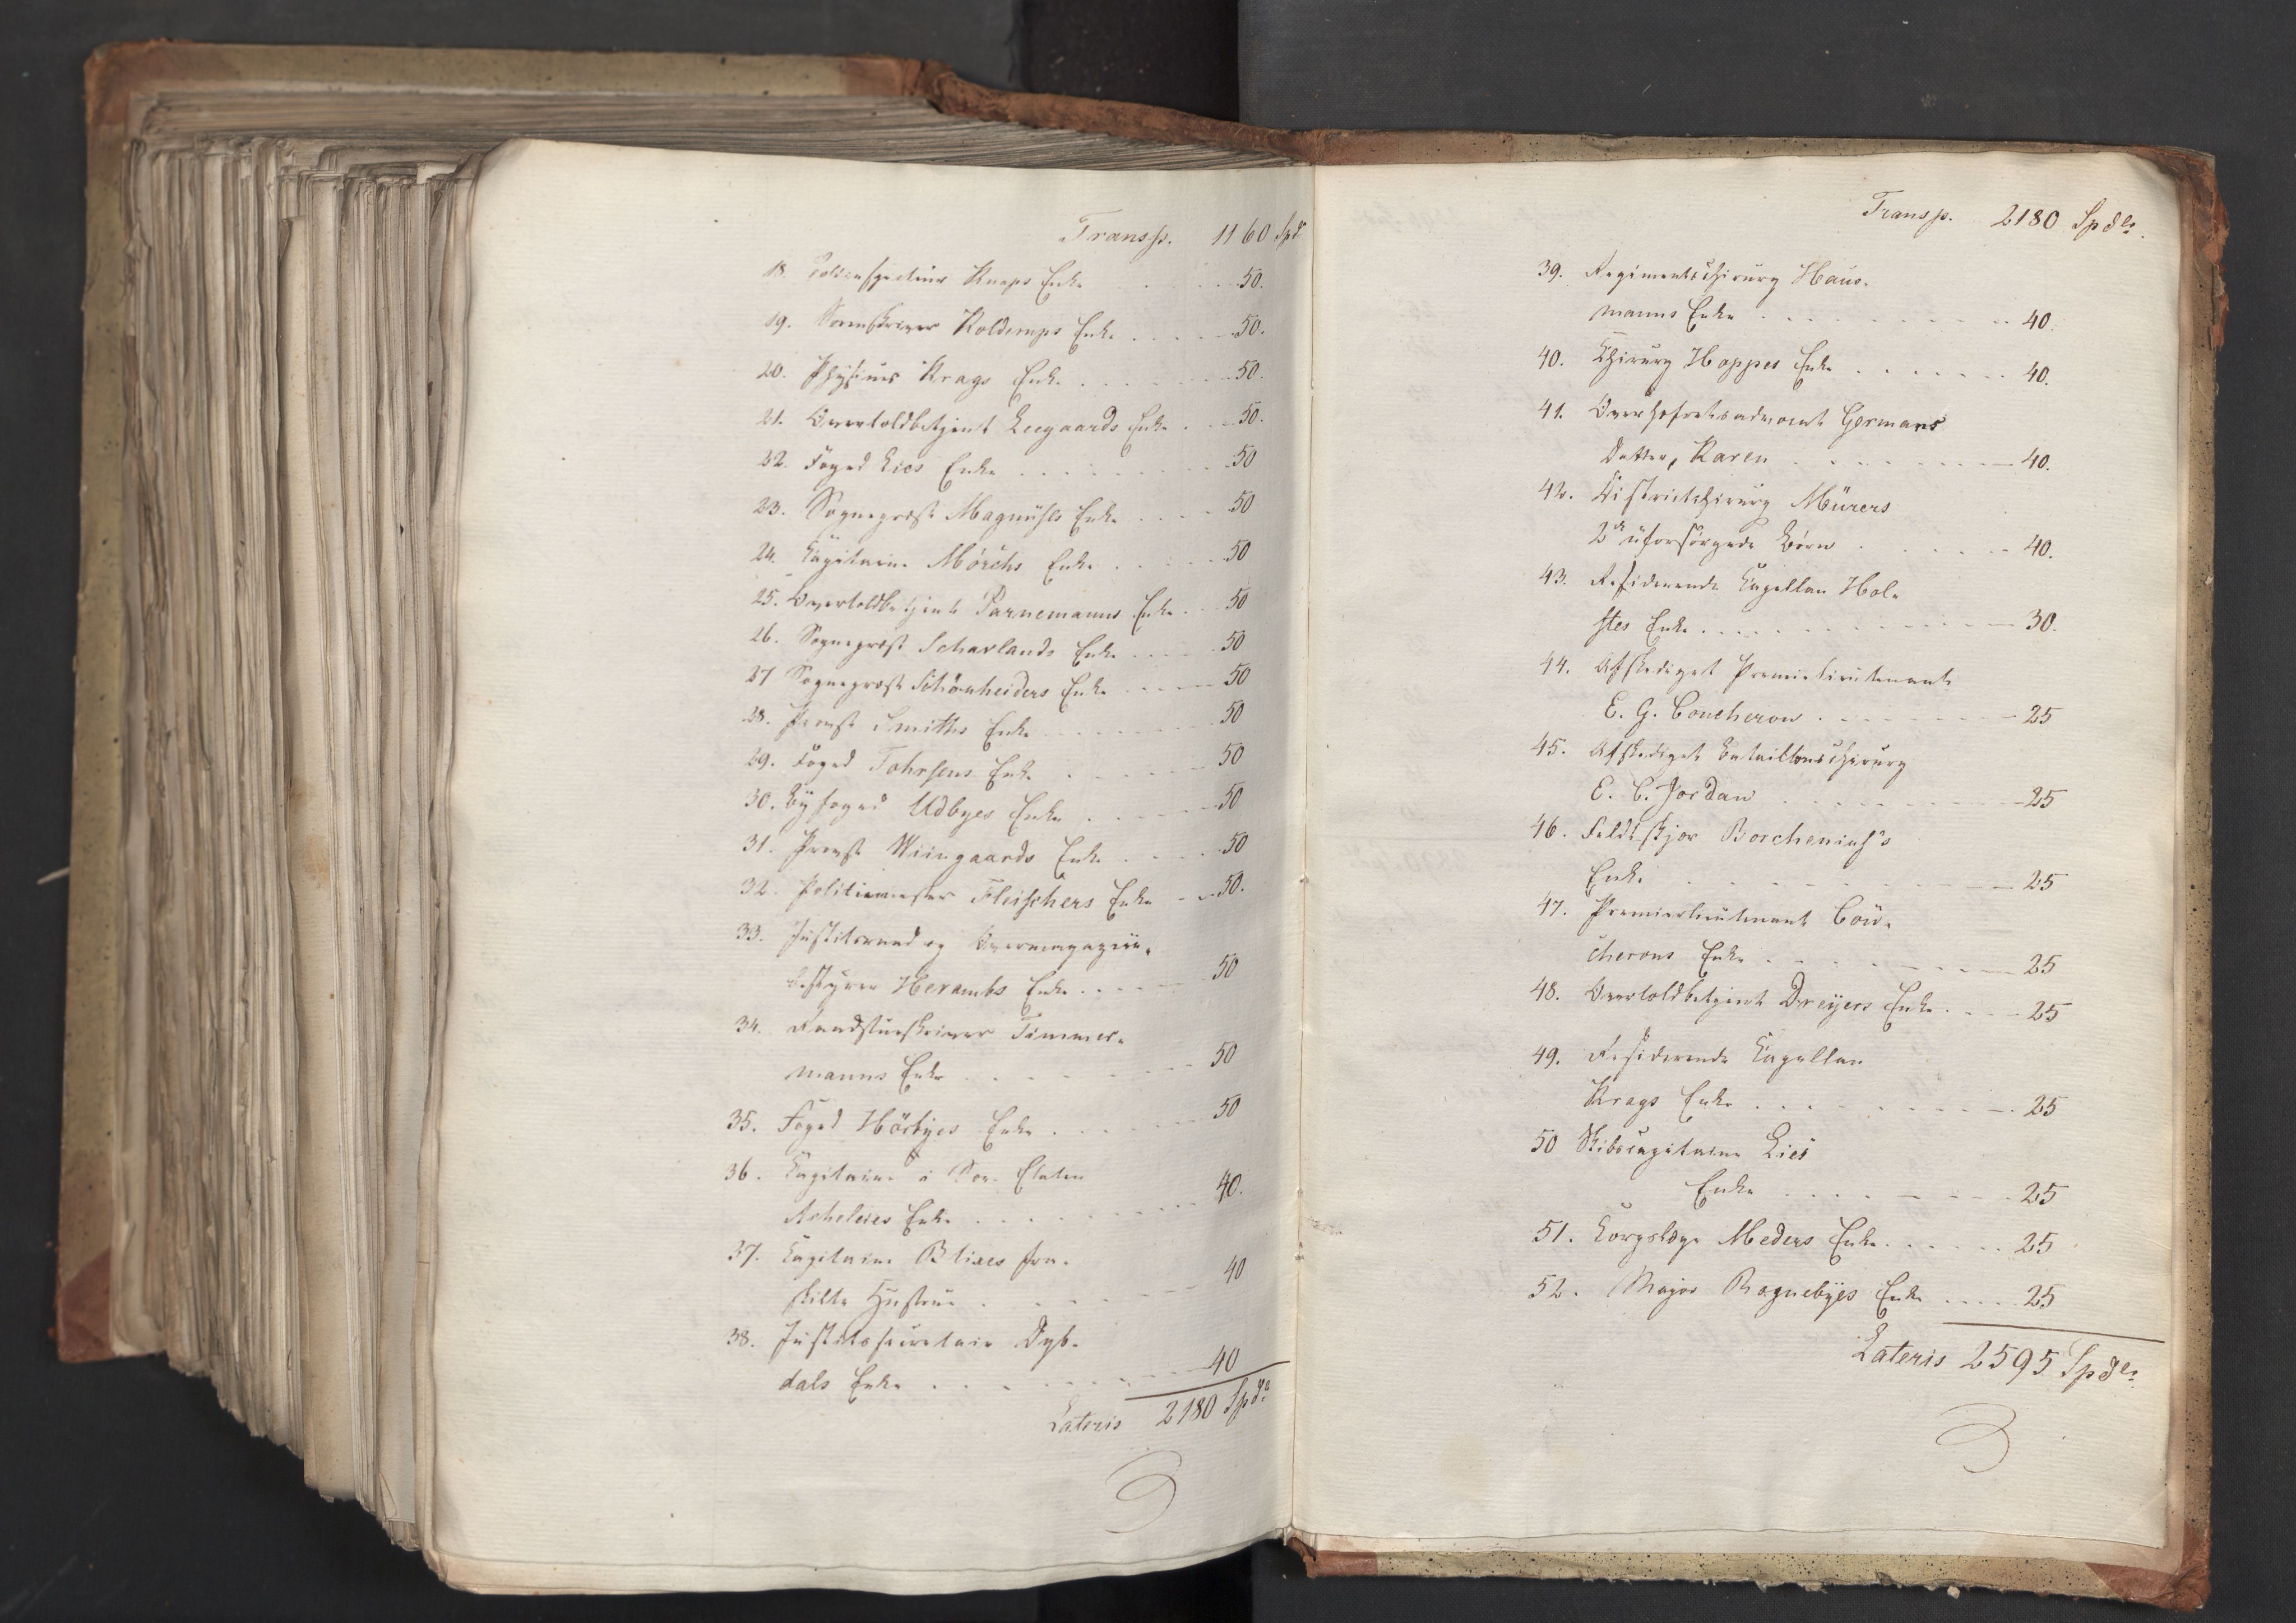 Transp. 1160 Spd.
18. Toldinspecteur Knaps Enke . . . . 50.
19. Sorenskriver Koldemps Enke . . . . 50.
20. Physicus Krags Enke . . . . 50.
21. Overtoldbetjent Leegaards Enke . . . 50.
22. Foged Lies Enke . . . . 50
23. Sognepræst Magnusls Enke . . . . 50
24. Capitaine Mørchs Enke . . . . 50
25. Overtoldbetjent Parnemanns Enke . . 50
26. Sognepræst Scharlands Enke . . . . 50
27 Sognepræst Schønheiders Enke . . . . 50
28. Provst Smiths Enke . . . . 50
29. Foged Tohrsens Enke . . . . 50
30. Byfoged Udbyes Enke . . . . 50
31. Provst Wiingaards Enke . . . . 50
32. Politimester Fleischers Enke . . 50.
33. Justitsraad og Overmagazin-
bestyrer Herambs Enke . . . . 50
34. Raadstueskriver Timmer-
manns Enke . . . . 50
35. Foged Hörbyes Enke . . . . 50
36. Capitaine i Søe Etaten
Enke . . . . 40.
37. Capitaine Blixes fra-
skilte Hustrue . . . . 40
38. Justitssecretair Dyb-
dals Enke . . . . 40
Lateris 2180 Spdr.
Transp. 2180 Spdlr.
39. Regimentschirurg Haus-
manns Enke . . . . 40
40. Chirurg Hoppes Enke . . . . 40.
41. Overhofretsadvocat Germans
Datter, Karen . . . . 40.
42. Districtschirurg Mürers
2de uforsørgede Børn . . . . 40.
43. Residerende Capellan Hol-
stes Enke . . . . 30.
44. Afskediget Premierlieutenant
E. G. Coucheron . . . . 25
45. Afskediget Bataillonschirurg
E. C. Jordan . . . . 25
46. Feldtskjær Borchenius's
Enke . . . . 25
47. Premierlieutenant Cou-
cherons Enke . . . . 25
48. Overtoldbetjent Dreyers Enke . . . . 25
49. Residerende Capellan
Krags Enke . . . . 25
50 Skibscapitaine Lies
Enke . . . . 25
51. Corpslæge Meders Enke . . . . 25
52. Major Rognebyes Enke . . . . 25
Lateris 2595 Spdlr.